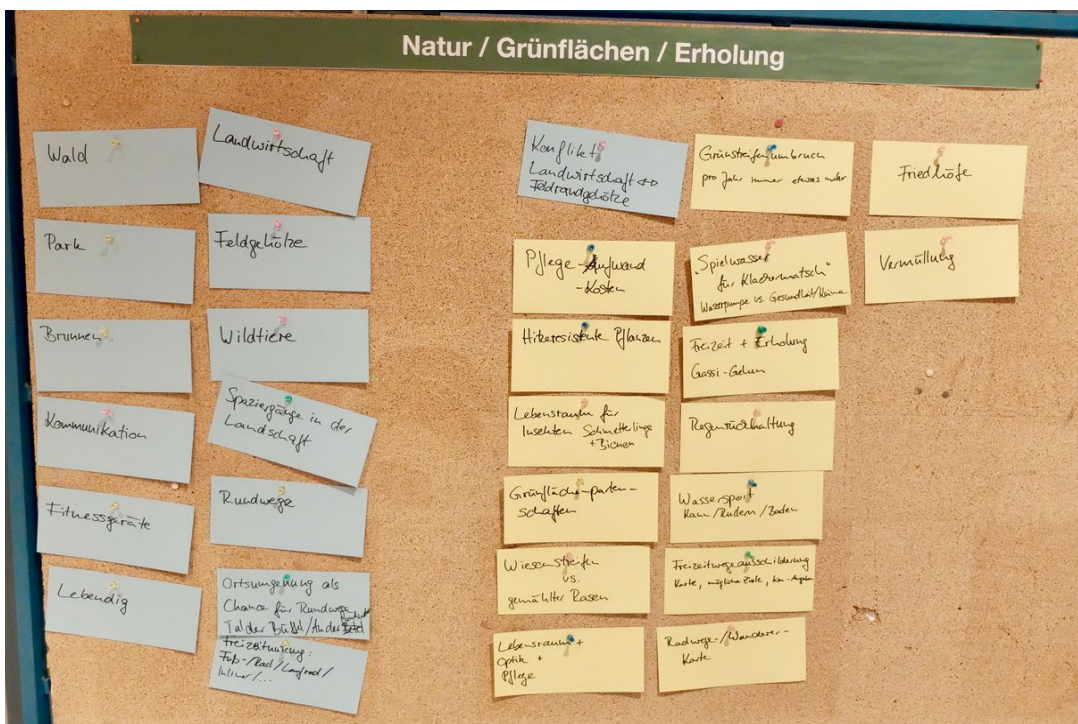 Natur / Grünflächen / Erholung
Wald
Park
Brunnen
Kommunikation
Fitnessgeräte
Lebendig
Landwirtschaft
Feldgehölze
Wildtiere
Spaziergänge in der
Landschaft
Rundwege
Ortsumgehung als
Chance für Rundwege
Tal der Büffel/An der
Freizeitnutzung:
Fuß-/Rad/Laufrad/
Inliner/...
Konflikt
Landwirtschaft ↔
Feldrandgehölze
Pflege-Aufwand
-Kosten
Hitzeresistente Pflanzen
Lebensraum für
Insekten Schmetterlinge
+Bienen
Grünflächenparten-
schaften
Wiesenstreifen
vs.
gemähter Rasen
Lebensraum +
Optik +
Pflege
Grünstreifenumbruch
pro Jahr immer etwas mehr
"Spielwasser
für Klackermatsch"
Wasserpumpe vs. Gesundheit/Keime
Freizeit + Erholung
Gassi-Gehen
Regenrückhaltung
Wassersport
Kanu/Rudern/Baden
Freizeitwegeausschilderung
Karte, mögliche Ziele, km-Angaben
Radwege-/Wanderer-
Karte
Friedhöfe
Vermüllung